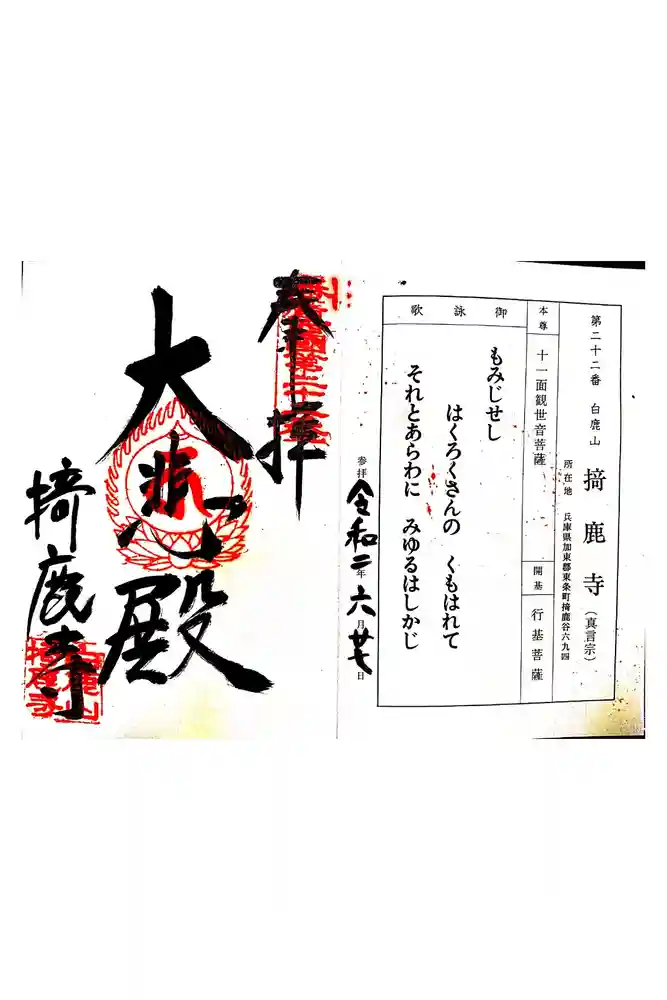 第二十二番 白鹿山 掎鹿寺(真言宗)
所在地 兵庫県加東郡東条町掎鹿谷六九四
本尊 十一面観世音菩薩
開基 行基菩薩
御詠歌
もみじせし
はくろくさんの くもはれて
それとあらわに みゆるはしかじ
参拝 令和二年六月廿七日
奉拝
大悲殿
掎鹿寺